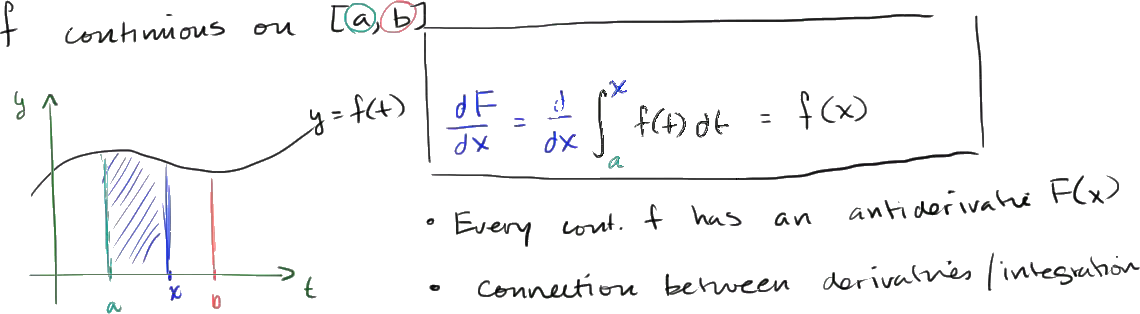 f continuous on [a, b]
y
y = f(t)
dF/dx = d/dx ∫_a^x f(t) dt = f(x)
• Every cont. f has an antiderivative F(x)
• connection between derivatives/integration
a x b t